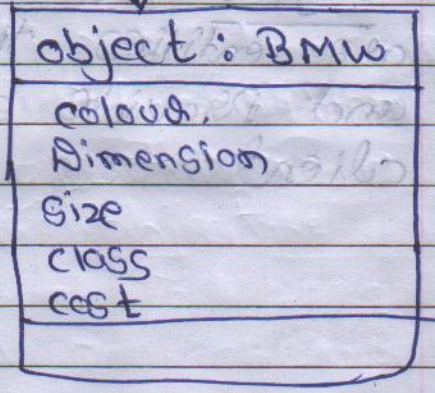 object : BMW
colour.
Dimension
size
class
cost